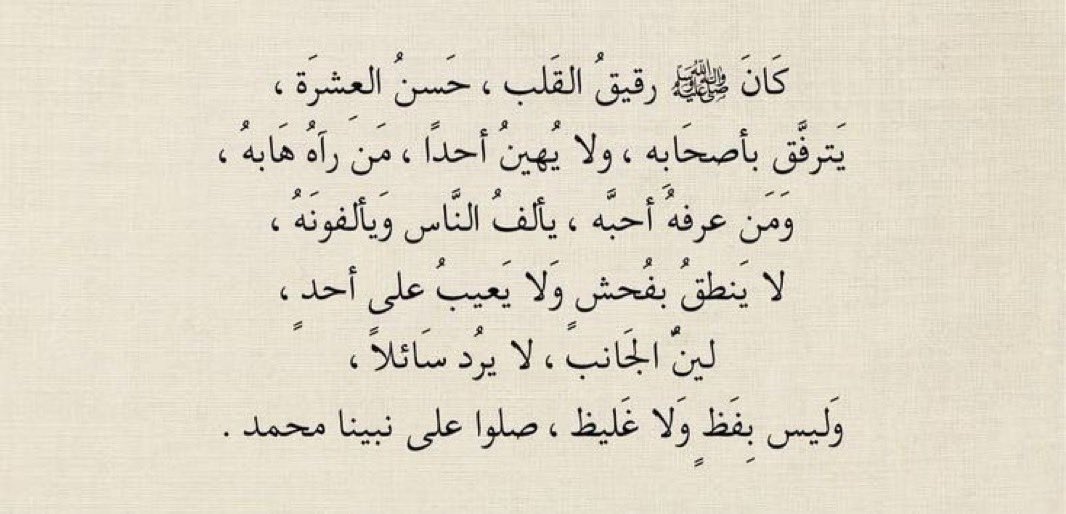 كَانَ ﷺ رقيقُ القَلب ، حَسنُ العِشرَة ،
يَترفَّق بأصحَابِه ، ولا يُهينُ أحدًا ، مَن رآهُ هَابهُ ،
وَمَن عرفهُ أحبَّه ، يألفُ النَّاس وَيألفونَهُ ،
لا يَنطقُ بفُحشٍ وَلا يَعيبُ على أحدٍ ،
لينٌ الجَانب ، لا يرُد سَائلاً ،
وَليس بِفَظٍ وَلا غَليظ ، صلوا على نبينا محمد .